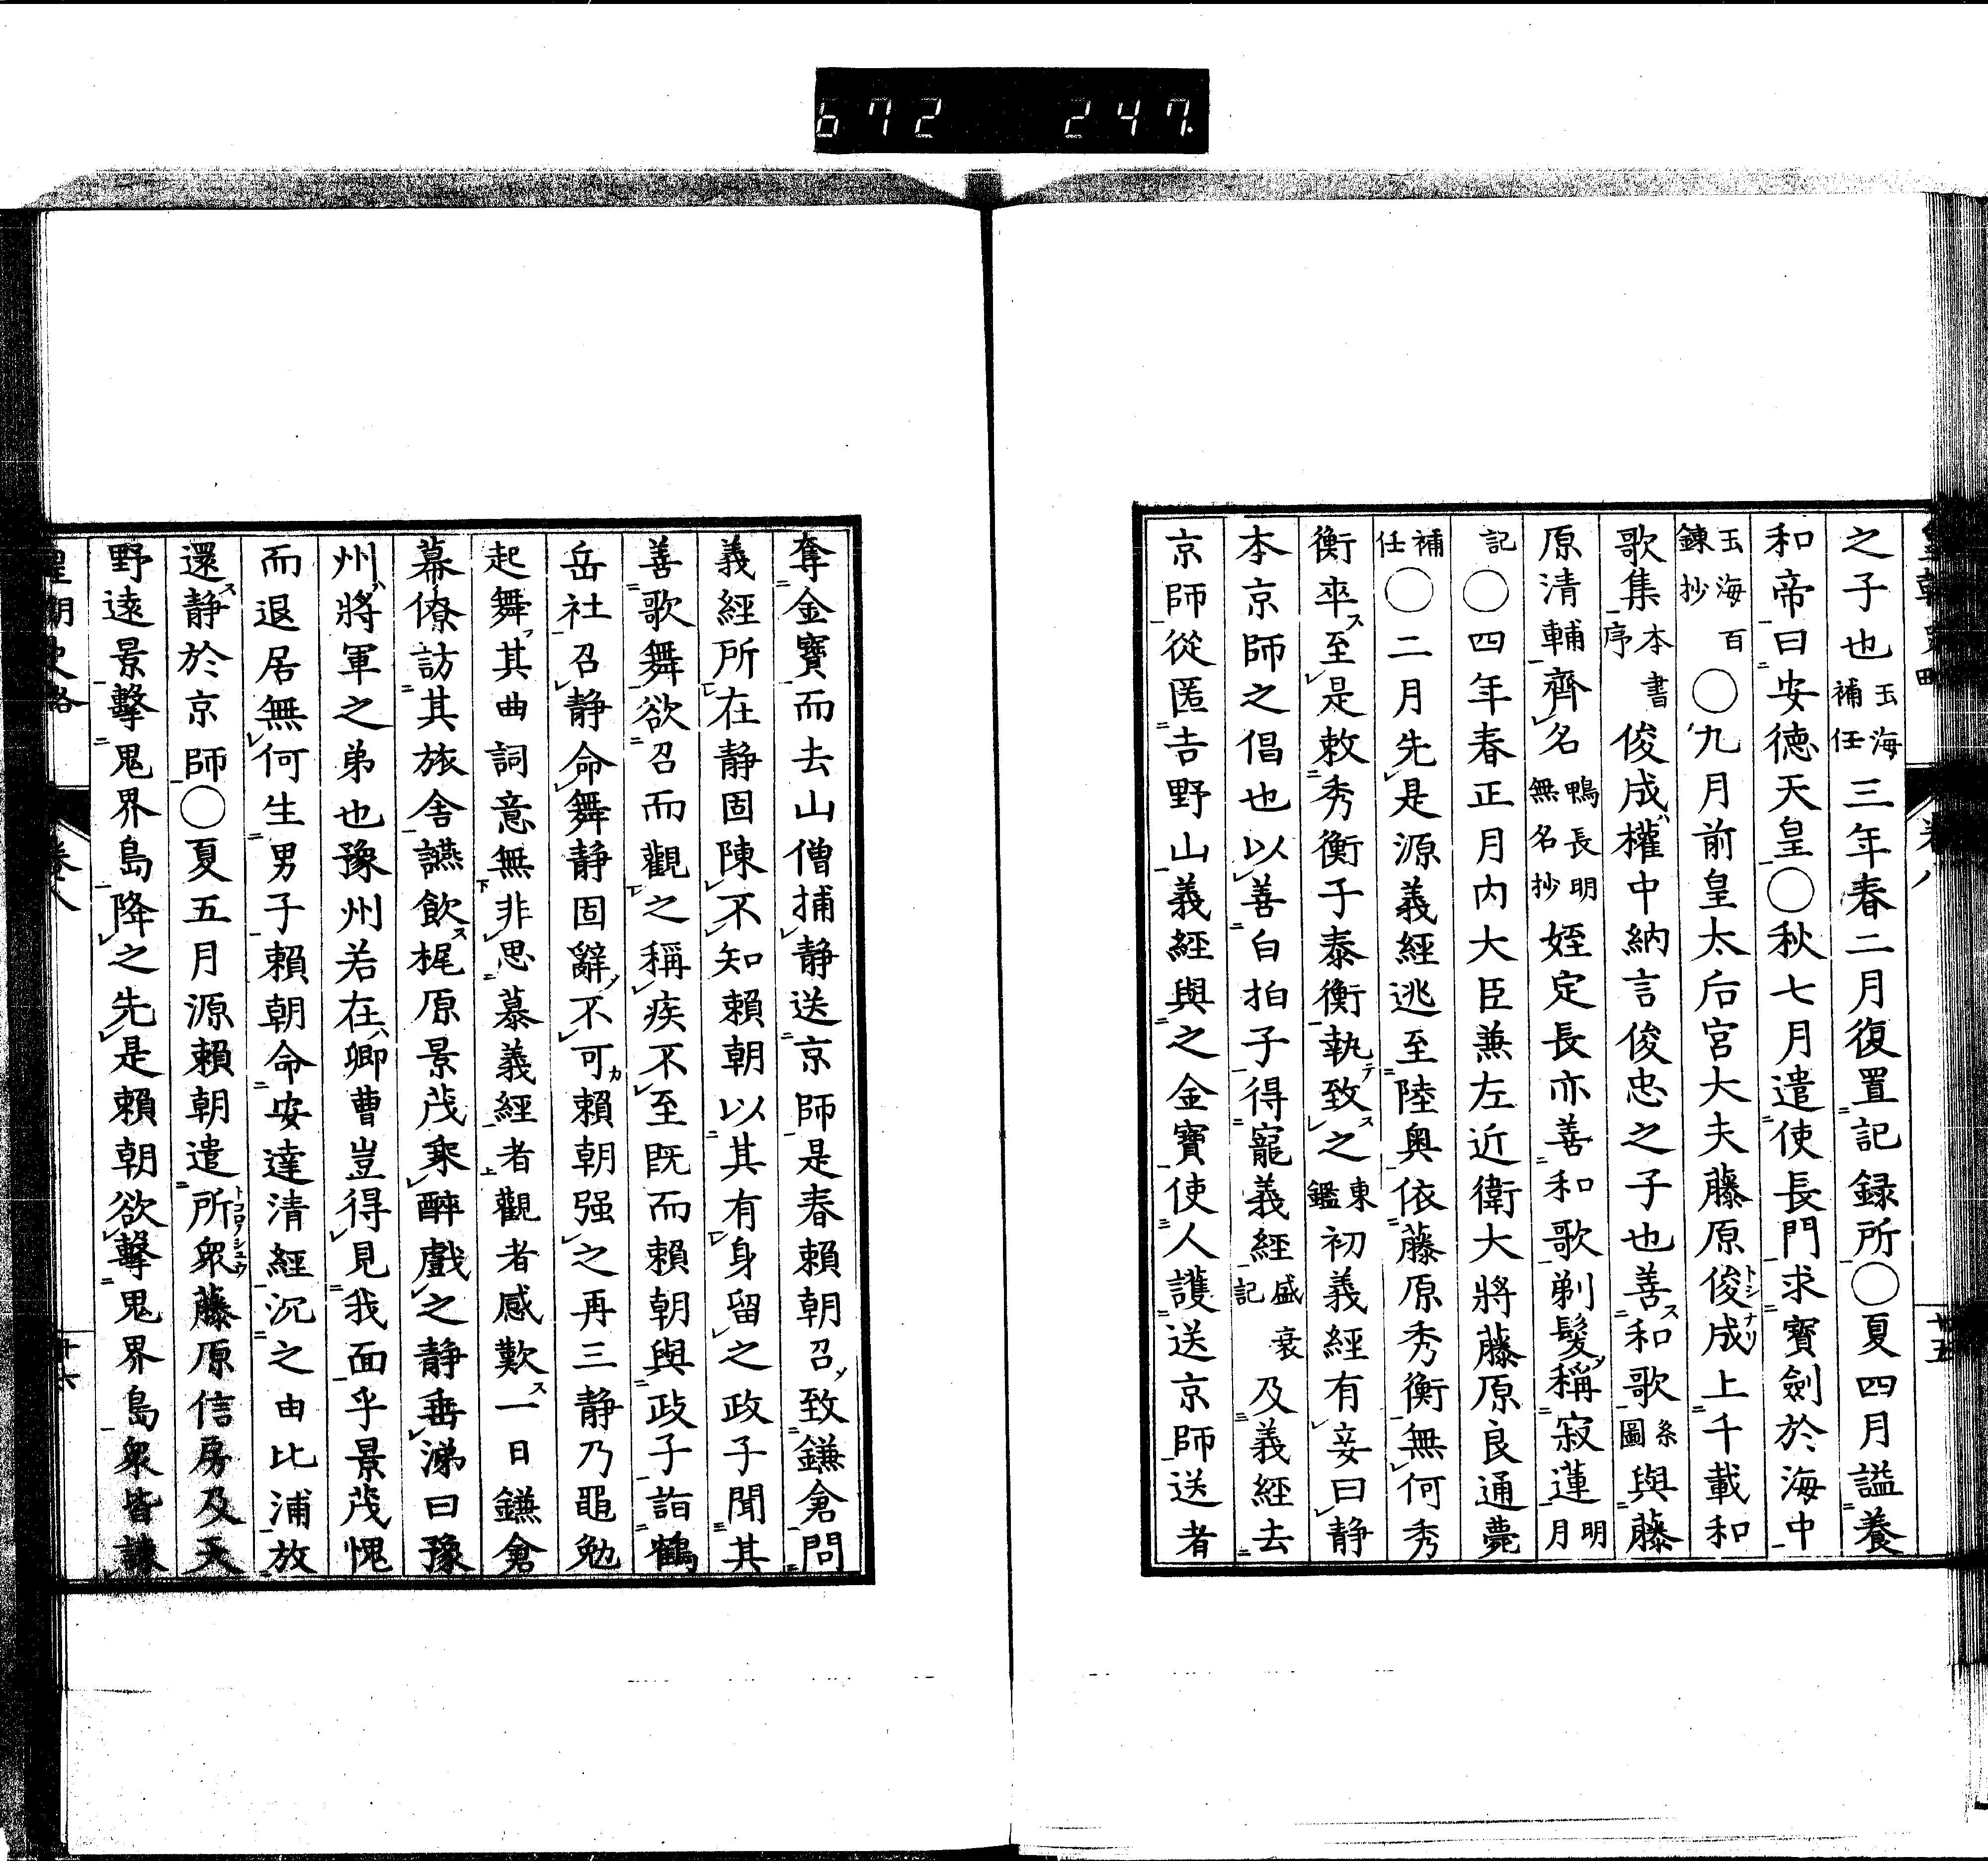 672 247
之子也玉海補任三年春二月復置記録所○夏四月謚養
和帝曰安德天皇○秋七月遣使長門求寶劍於海中
玉海百鍊抄○九月前皇太后宮大夫藤原俊成上千載和
歌集本書序俊成權中納言俊忠之子也善和歌系圖與藤
原清輔齊名鴨長明無名抄姪定長亦善和歌剃髮稱寂蓮明月
記○四年春正月内大臣兼左近衛大將藤原良通薨
補任○二月先是源義經逃至陸奥依藤原秀衡無何秀
衡卒至是敕秀衡子泰衡執致之東鑑初義經有妾曰静
本京師之倡也以善白拍子得寵義經盛衰記及義經去
京師從匿吉野山義經與之金寶使人護送京師送者
奪金寶而去山僧捕静送京師是春賴朝召致鎌倉問
義經所在静固陳不知賴朝以其有身留之政子聞其
善歌舞欲召而觀之稱疾不至既而賴朝與政子詣鶴
岳社召静命舞静固辭不可賴朝强之再三静乃黽勉
起舞其曲詞意無非思慕義經者觀者感歎一日鎌倉
幕僚訪其旅舍讌飲梶原景茂乘醉戲之静垂涕曰豫
州將軍之弟也豫州若在卿曹豈得見我面乎景茂愧
而退居無何生男子賴朝命安達清經沉之由比浦放
還静於京師○夏五月源賴朝遣所衆藤原信房及天
野遠景擊鬼界島降之先是賴朝欲擊鬼界島衆皆諫